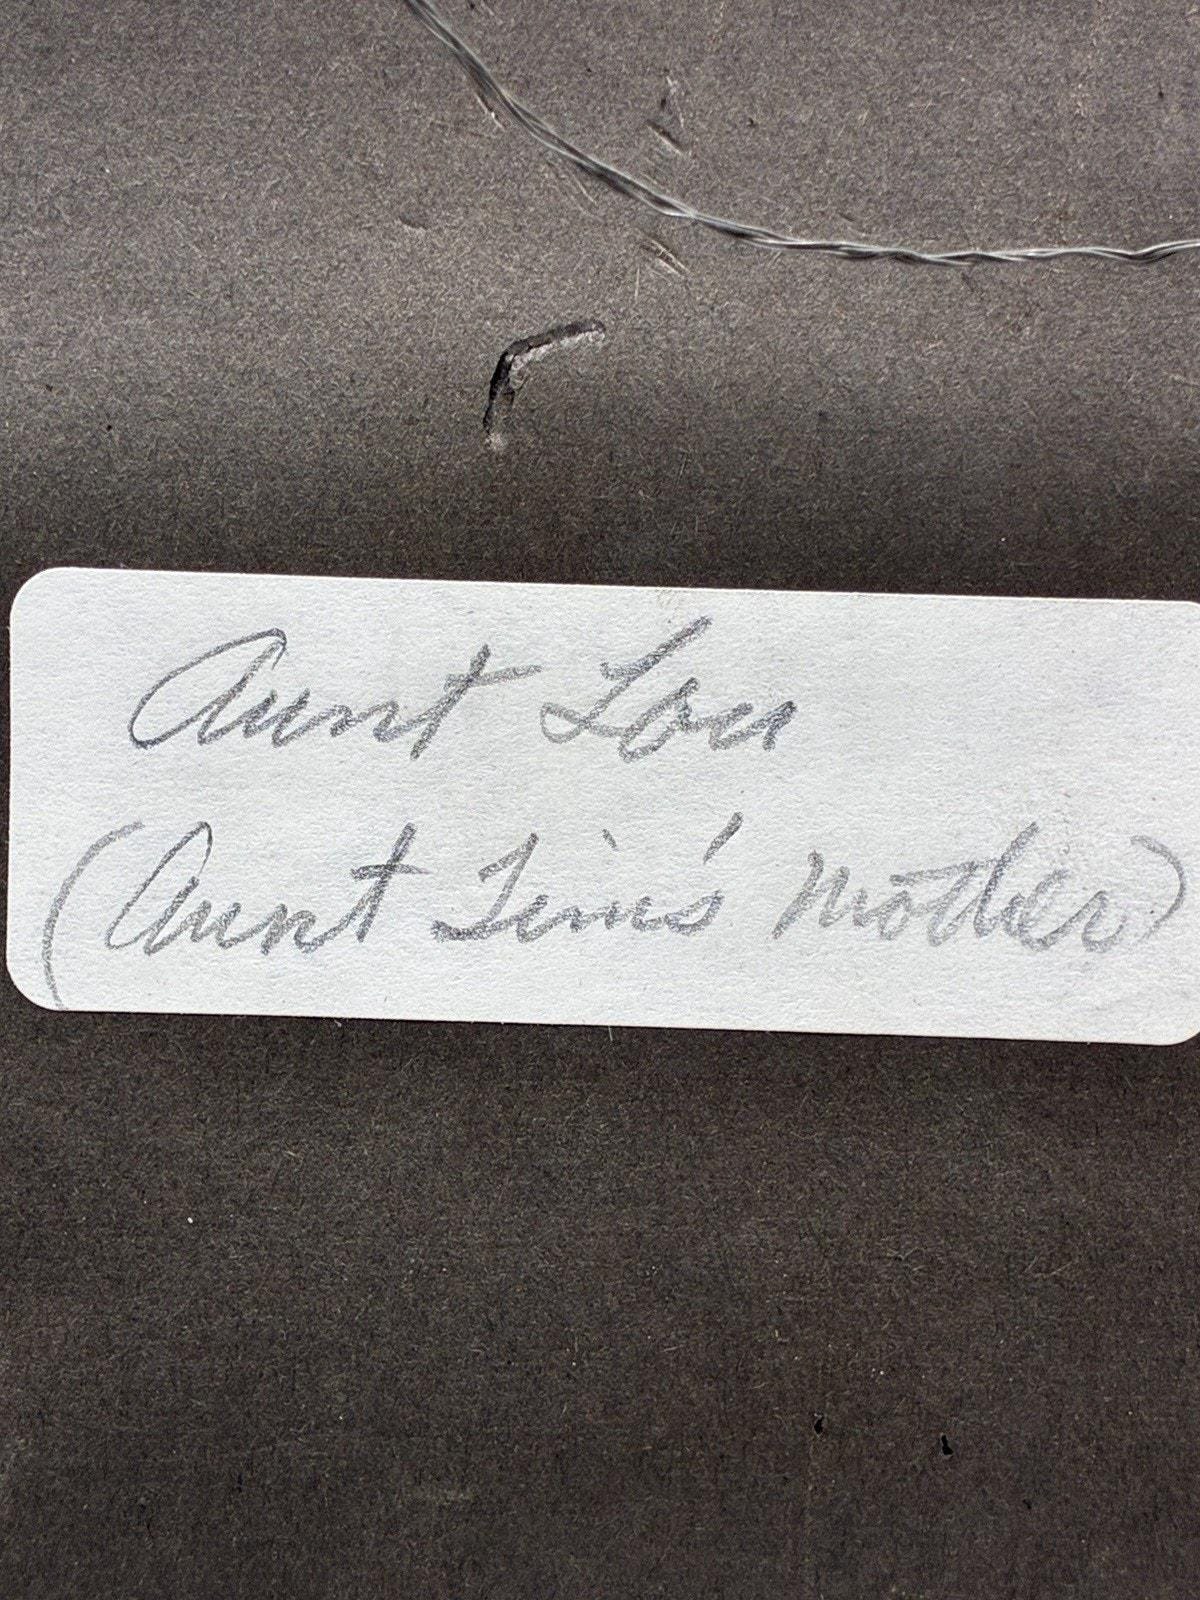 Aunt Lou
(Aunt Mother)